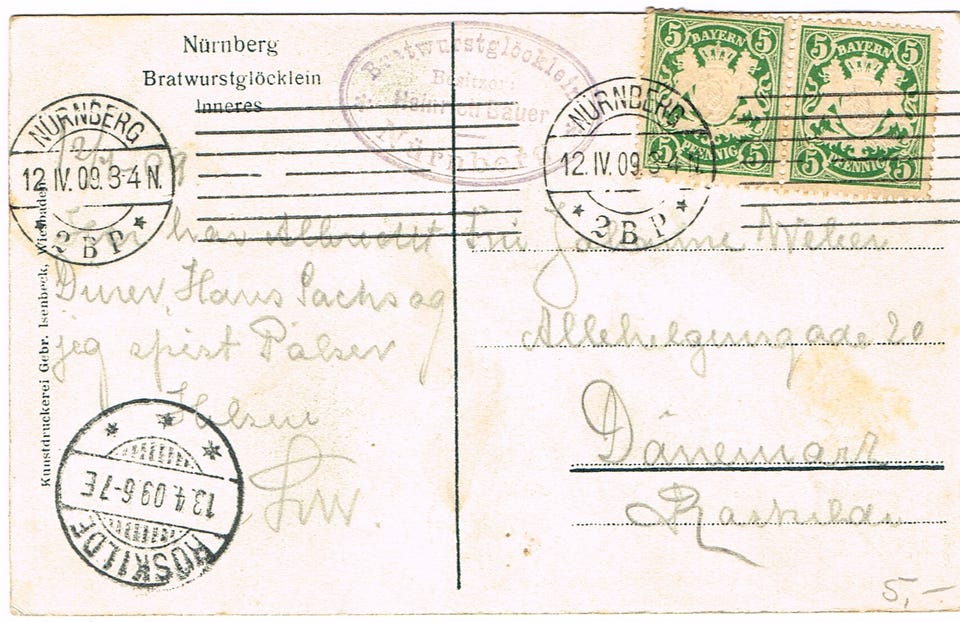 Nürnberg
Bratwurstglöcklein
Inneres
Bratwurstglöcklein
Besitzer:
Heinrich Bauer
Nürnberg
BAYERN
5 5
5 PFENNIG 5
BAYERN
5 5
5 PFENNIG 5
NÜRNBERG
12.IV.09.3-4 N.
2 B P
NÜRNBERG
12.IV.09.3-4 N.
2 B P
12/4 09
Her har Albrecht
Dürer, Hans Sachs og
jeg spist Pølser
Hilsen
Kunstdruckerei Gebr. Isenbeck, Wiesbaden
13.4.09.6-7E
ROSKILDE
Weber
Allehelgensgade 20
Dänemark
Roskilde
5,-